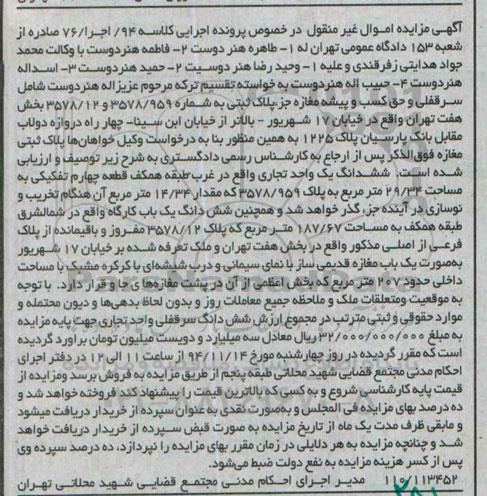 آگهی مزایده اموال غیر منقول در خصوص پرونده اجرایی کلاسه ۹۴/ اجرا/۷۶ صادره از
شعبه ۱۵۳ دادگاه عمومی تهران له ۱- طاهره هنر دوست ۲- فاطمه هنردوست با وکالت محمد
جواد هدایتی زفرقندی و علیه ۱- وحید رضا هنر دوست ۲- حمید هنردوست ۳- اسداله
هنردوست ۴- حبیب اله هنردوست به خواسته تقسیم ترکه مرحوم عزیزاله هنردوست شامل
سرقفلی و حق کسب و پیشه مغازه جزء پلاک ثبتی به شماره ۳۵۷۸/۹۵۹ و ۳۵۷۸/۱۲ بخش
هفت تهران واقع در خیابان ۱۷ شهریور - بالاتر از خیابان ابن سینا- چهار راه دروازه دولاب
مقابل بانک پارسیان پلاک ۱۲۲۵ به همین منظور بنا به درخواست وکیل خواهان‌ها پلاک ثبتی
مغازه فوق‌الذکر پس از ارجاع به کارشناس رسمی دادگستری به شرح زیر توصیف و ارزیابی
شده است. ششدانگ یک واحد تجاری واقع در غرب طبقه همکف قطعه چهارم تفکیکی به
مساحت ۲۹/۳۴ متر مربع به پلاک ۳۵۷۸/۹۵۹ که مقدار ۱۴/۳۴ متر مربع آن هنگام تخریب و
نوسازی در آینده جزء گذر خواهد شد و همچنین شش دانگ یک باب کارگاه واقع در شمالشرق
طبقه همکف به مساحت ۱۸۷/۶۷ متر مربع که پلاک ۳۵۷۸/۱۲ مفروز و باقیمانده از پلاک
فرعی از اصلی مذکور واقع در بخش هفت تهران و ملک تعرفه شده بر خیابان ۱۷ شهریور
به‌صورت یک باب مغازه قدیمی ساز با نمای سیمانی و درب شیشه‌ای با کرکره مشبک با مساحت
داخلی حدود ۲۰۷ متر مربع که بخش اعظمی از آن در پشت مغازه‌های جا و قرار دارد. با توجه
به موقعیت ومتعلقات ملک و ملاحظه جمیع معاملات روز و بدون لحاظ بدهی‌ها و دیون محتمله و
موارد حقوقی و ثبتی مترتب در مجموع ارزش شش دانگ سرقفلی واحد تجاری جهت پایه مزایده
به مبلغ ۳۲/۰۰۰/۰۰۰/۰۰۰ ریال معادل سه میلیارد و دویست میلیون تومان برآورد گردیده
است که مقرر گردیده در روز چهارشنبه مورخ ۹۴/۱۱/۱۴ از ساعت ۱۱ الی ۱۲ در دفتر اجرای
احکام مدنی مجتمع قضایی شهید محلاتی طبقه پنجم از طریق مزایده به فروش برسد ومزایده از
قیمت پایه کارشناسی شروع و به کسی که بالاترین قیمت را پیشنهاد کند فروخته خواهد شد و
ده درصد بهای مزایده فی المجلس و به‌صورت نقدی به عنوان سپرده از خریدار دریافت میشود
و مابقی ظرف مدت یک ماه از تاریخ مزایده به صورت قبض سپرده از خریدار دریافت خواهد
شد و چنانچه مزایده به هر دلایلی در زمان مقرر بهای مزایده را نپردازد، ده درصد سپرده وی
پس از کسر هزینه مزایده به نفع دولت ضبط می‌شود.
۱۱۰/۱۱۳۴۵۲ مدیر اجرای احکام مدنی مجتمع قضایی شهید محلاتی تهران